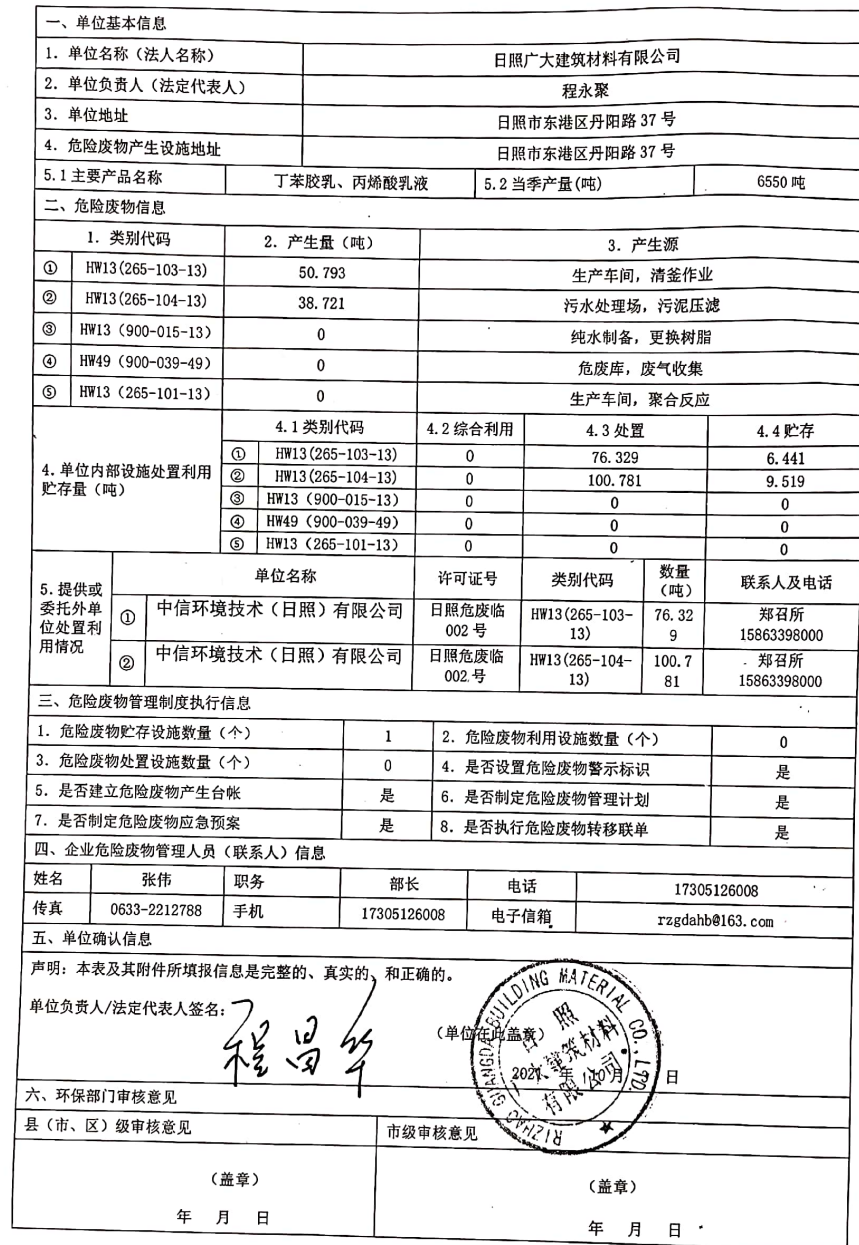 一、单位基本信息
1. 单位名称（法人名称） 日照广大建筑材料有限公司
2. 单位负责人（法定代表人） 程永聚
3. 单位地址 日照市东港区丹阳路 37 号
4. 危险废物产生设施地址 日照市东港区丹阳路 37 号
5.1 主要产品名称 丁苯胶乳、丙烯酸乳液 5.2 当季产量(吨) 6550 吨
二、危险废物信息
1. 类别代码 2. 产生量（吨） 3. 产生源
① HW13(265-103-13) 50.793 生产车间，清釜作业
② HW13(265-104-13) 38.721 污水处理场，污泥压滤
③ HW13（900-015-13） 0 纯水制备，更换树脂
④ HW49（900-039-49） 0 危废库，废气收集
⑤ HW13（265-101-13） 0 生产车间，聚合反应
4. 单位内部设施处置利用
贮存量（吨）
4.1 类别代码 4.2 综合利用 4.3 处置 4.4 贮存
① HW13(265-103-13) 0 76.329 6.441
② HW13(265-104-13) 0 100.781 9.519
③ HW13（900-015-13） 0 0 0
④ HW49（900-039-49） 0 0 0
⑤ HW13（265-101-13） 0 0 0
5. 提供或
委托外单
位处置利
用情况
单位名称 许可证号 类别代码 数量
（吨） 联系人及电话
① 中信环境技术（日照）有限公司 日照危废临
002 号 HW13(265-103-
13) 76.32
9 郑召所
15863398000
② 中信环境技术（日照）有限公司 日照危废临
002 号 HW13(265-104-
13) 100.7
81 郑召所
15863398000
三、危险废物管理制度执行信息
1. 危险废物贮存设施数量（个） 1 2. 危险废物利用设施数量（个） 0
3. 危险废物处置设施数量（个） 0 4. 是否设置危险废物警示标识 是
5. 是否建立危险废物产生台帐 是 6. 是否制定危险废物管理计划 是
7. 是否制定危险废物应急预案 是 8. 是否执行危险废物转移联单 是
四、企业危险废物管理人员（联系人）信息
姓名 张伟 职务 部长 电话 17305126008
传真 0633-2212788 手机 17305126008 电子信箱 rzgdahb@163.com
五、单位确认信息
声明：本表及其附件所填报信息是完整的、真实的、和正确的。
单位负责人/法定代表人签名：
（单位在此盖章）
RIZHAO GUANGDA BUILDING MATERIAL CO., LTD.
日照
广大建筑材料
有限公司
2021 年 10 月 日
六、环保部门审核意见
县（市、区）级审核意见 市级审核意见
（盖章） （盖章）
年 月 日 年 月 日